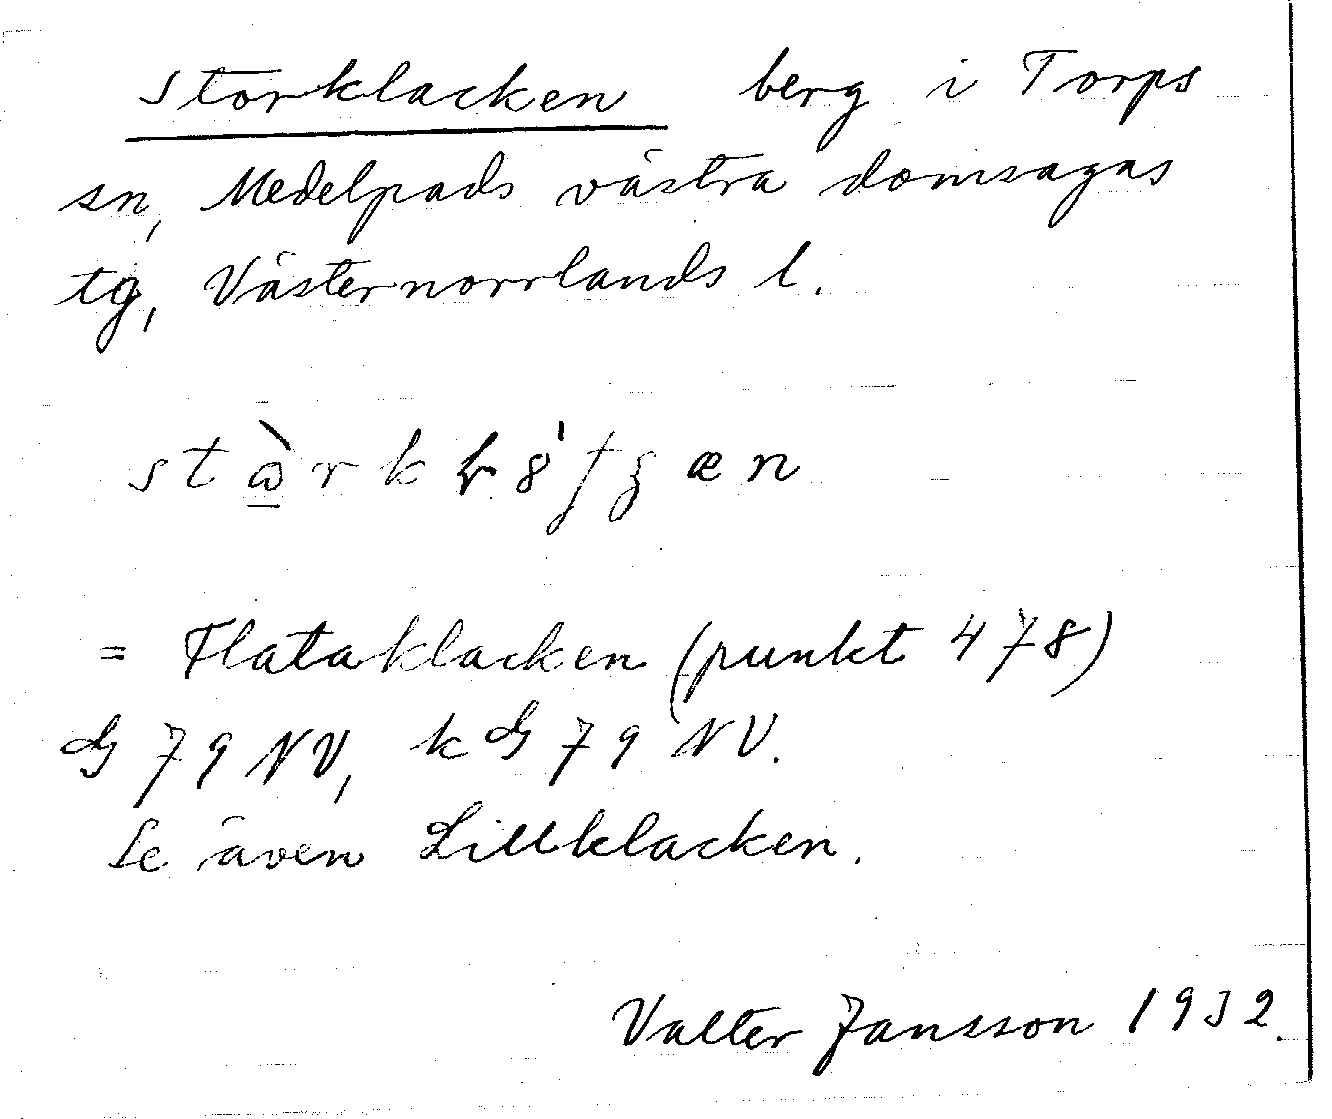 Storklacken berg i Torps
sn, Medelpads västra domsagas
tg, Västernorrlands l.
= Flataklacken (punkt 478)
G 79 NV, k G 79 NV.
Se även Lillklacken.
Valter Jansson 1932.